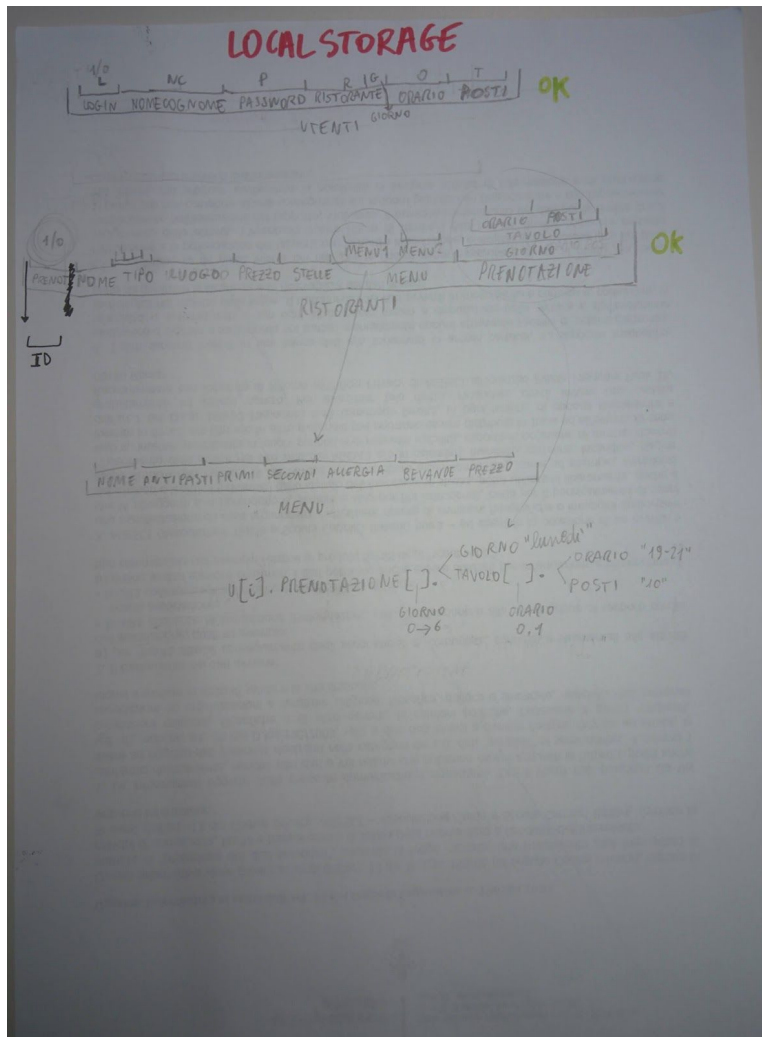 LOCAL STORAGE
1/0
L NC P R G O T
LOGIN NOMECOGNOME PASSWORD RISTORANTE ORARIO POSTI OK
GIORNO
UTENTI
ORARIO POSTI
1/0 MENU1 MENU2 TAVOLO OK
GIORNO
PRENOT NOME TIPO LUOGO PREZZO STELLE MENU PRENOTAZIONE
RISTORANTI
ID
NOME ANTIPASTI PRIMI SECONDI ALLERGIA BEVANDE PREZZO
MENU
GIORNO "lunedì"
U[i]. PRENOTAZIONE[ ]. TAVOLO[ ]. ORARIO "19-21"
POSTI "10"
GIORNO ORARIO
0→6 0,1